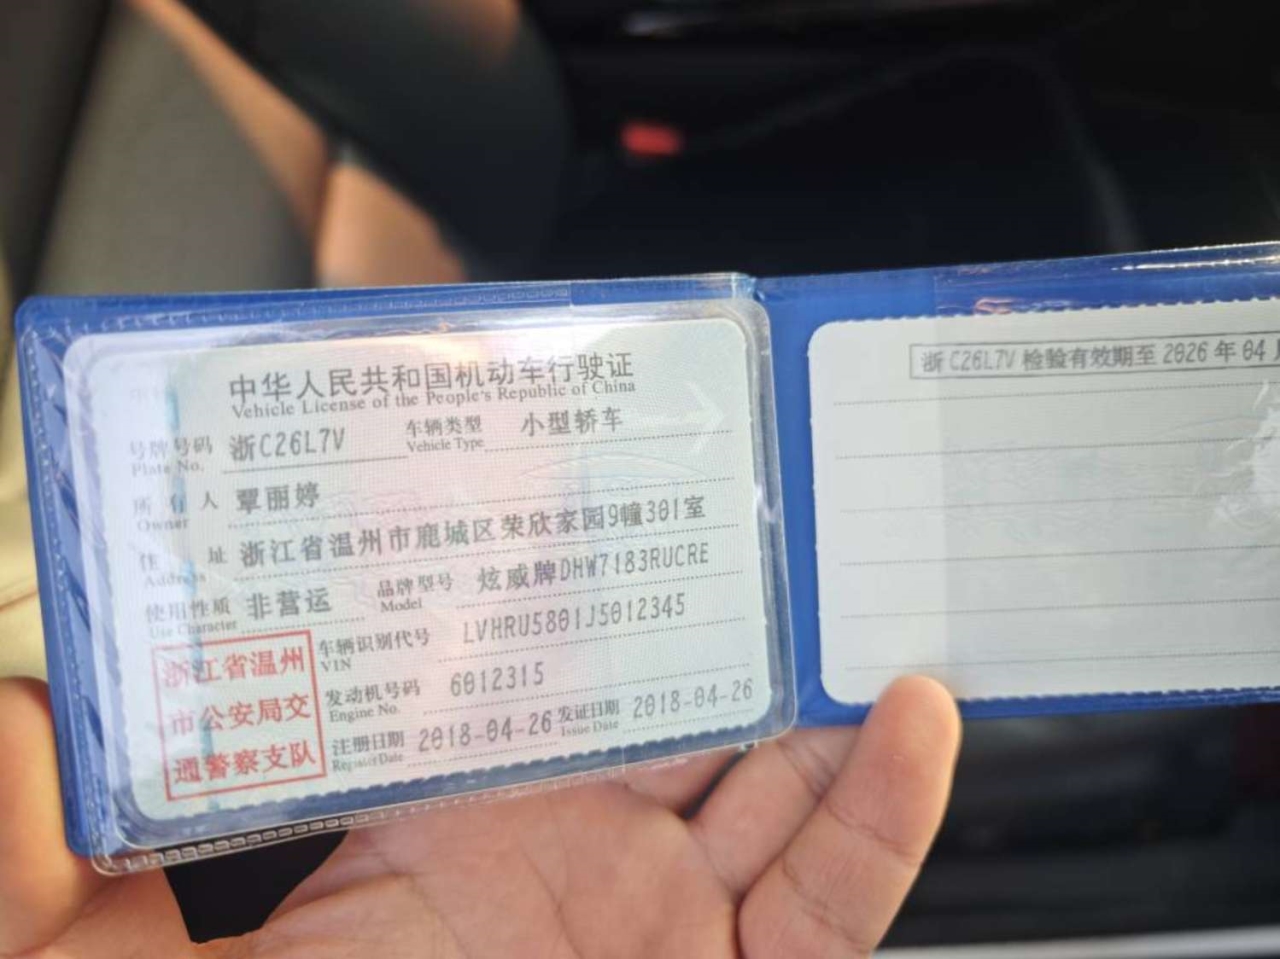 中华人民共和国机动车行驶证
Vehicle License of the People's Republic of China
号牌号码 浙C26L7V 车辆类型 小型轿车
Plate No. Vehicle Type
所有人 覃丽婷
Owner
住址 浙江省温州市鹿城区荣欣家园9幢301室
Address
使用性质 非营运 品牌型号 炫威牌DHW7183RUCRE
Use Character Model
车辆识别代号 LVHRU5801J5012345
VIN
发动机号码 6012315
Engine No.
注册日期 2018-04-26 发证日期 2018-04-26
Register Date Issue Date
浙江省温州
市公安局交
通警察支队
浙C26L7V 检验有效期至 2026年04月